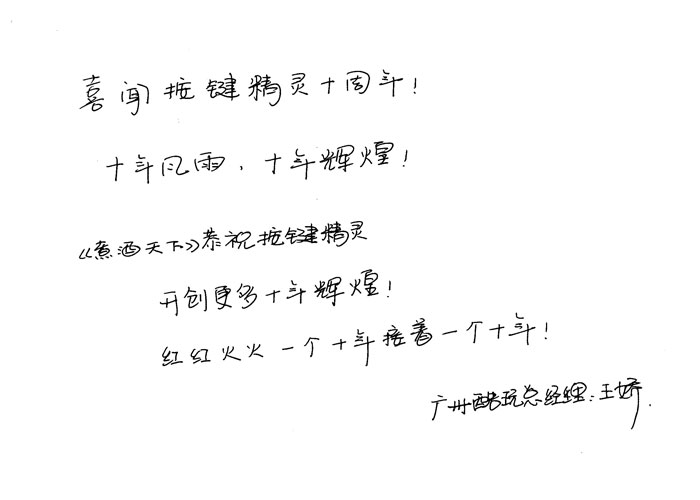 喜闻按键精灵十周年!
十年风雨,十年辉煌!
《煮酒天下》恭祝按键精灵
开创更多十年辉煌!
红红火火一个十年接着一个十年!
广州酷玩总经理:王娇.